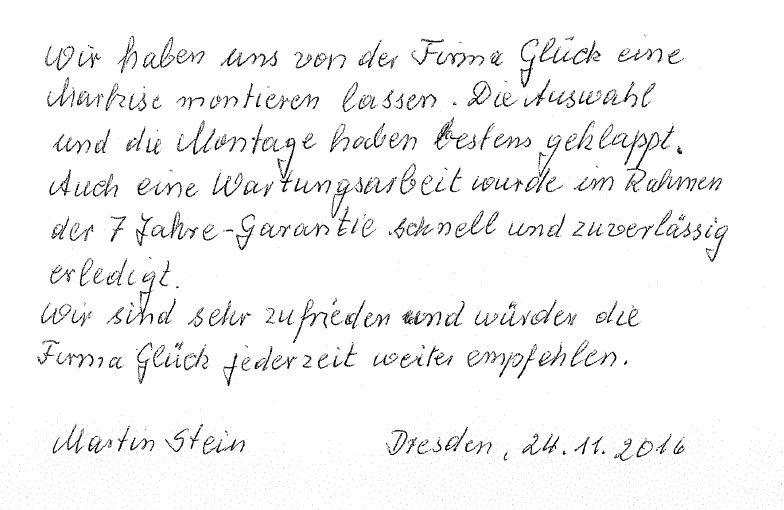 Wir haben uns von der Firma Glück eine
Markise montieren lassen. Die Auswahl
und die Montage haben bestens geklappt.
Auch eine Wartungsarbeit wurde im Rahmen
der 7 Jahre-Garantie schnell und zuverlässig
erledigt.
Wir sind sehr zufrieden und würden die
Firma Glück jederzeit weiter empfehlen.
Martin Stein Dresden, 24.11.2016